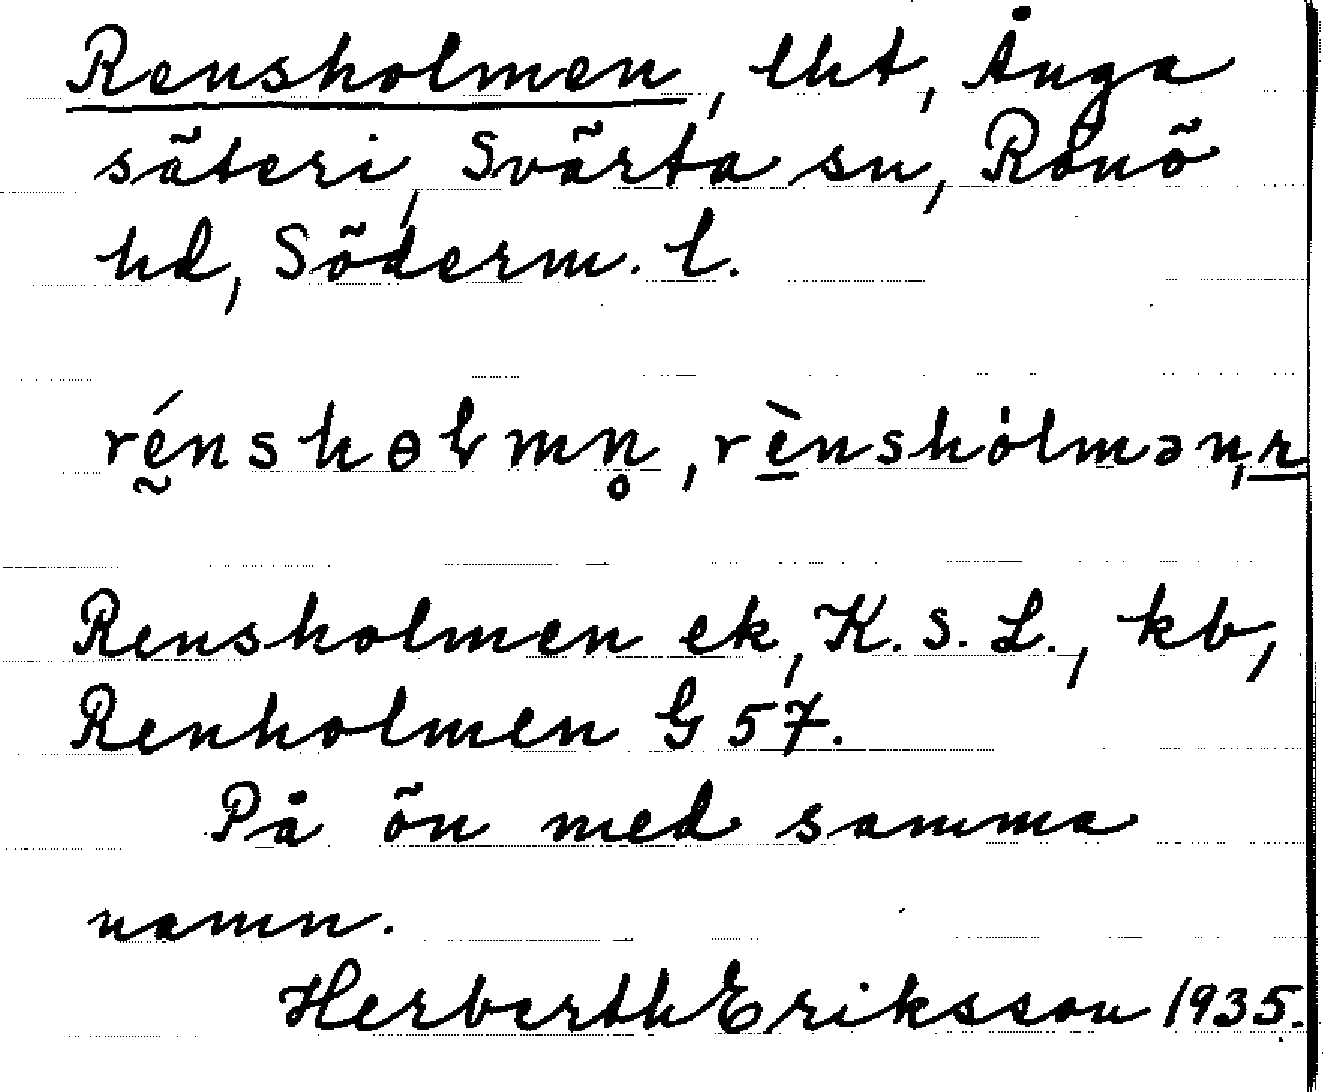 Rensholmen, lht, Ånga
säteri, Svärta sn, Rönö
hd, Söderm. l.
rḛ́nshɵɫmn̥, rè̱nshòlmən, r
Rensholmen ek, K. S. L., kb,
Renholmen G 57.
På ön med samma
namn.
Herberth Eriksson 1935.